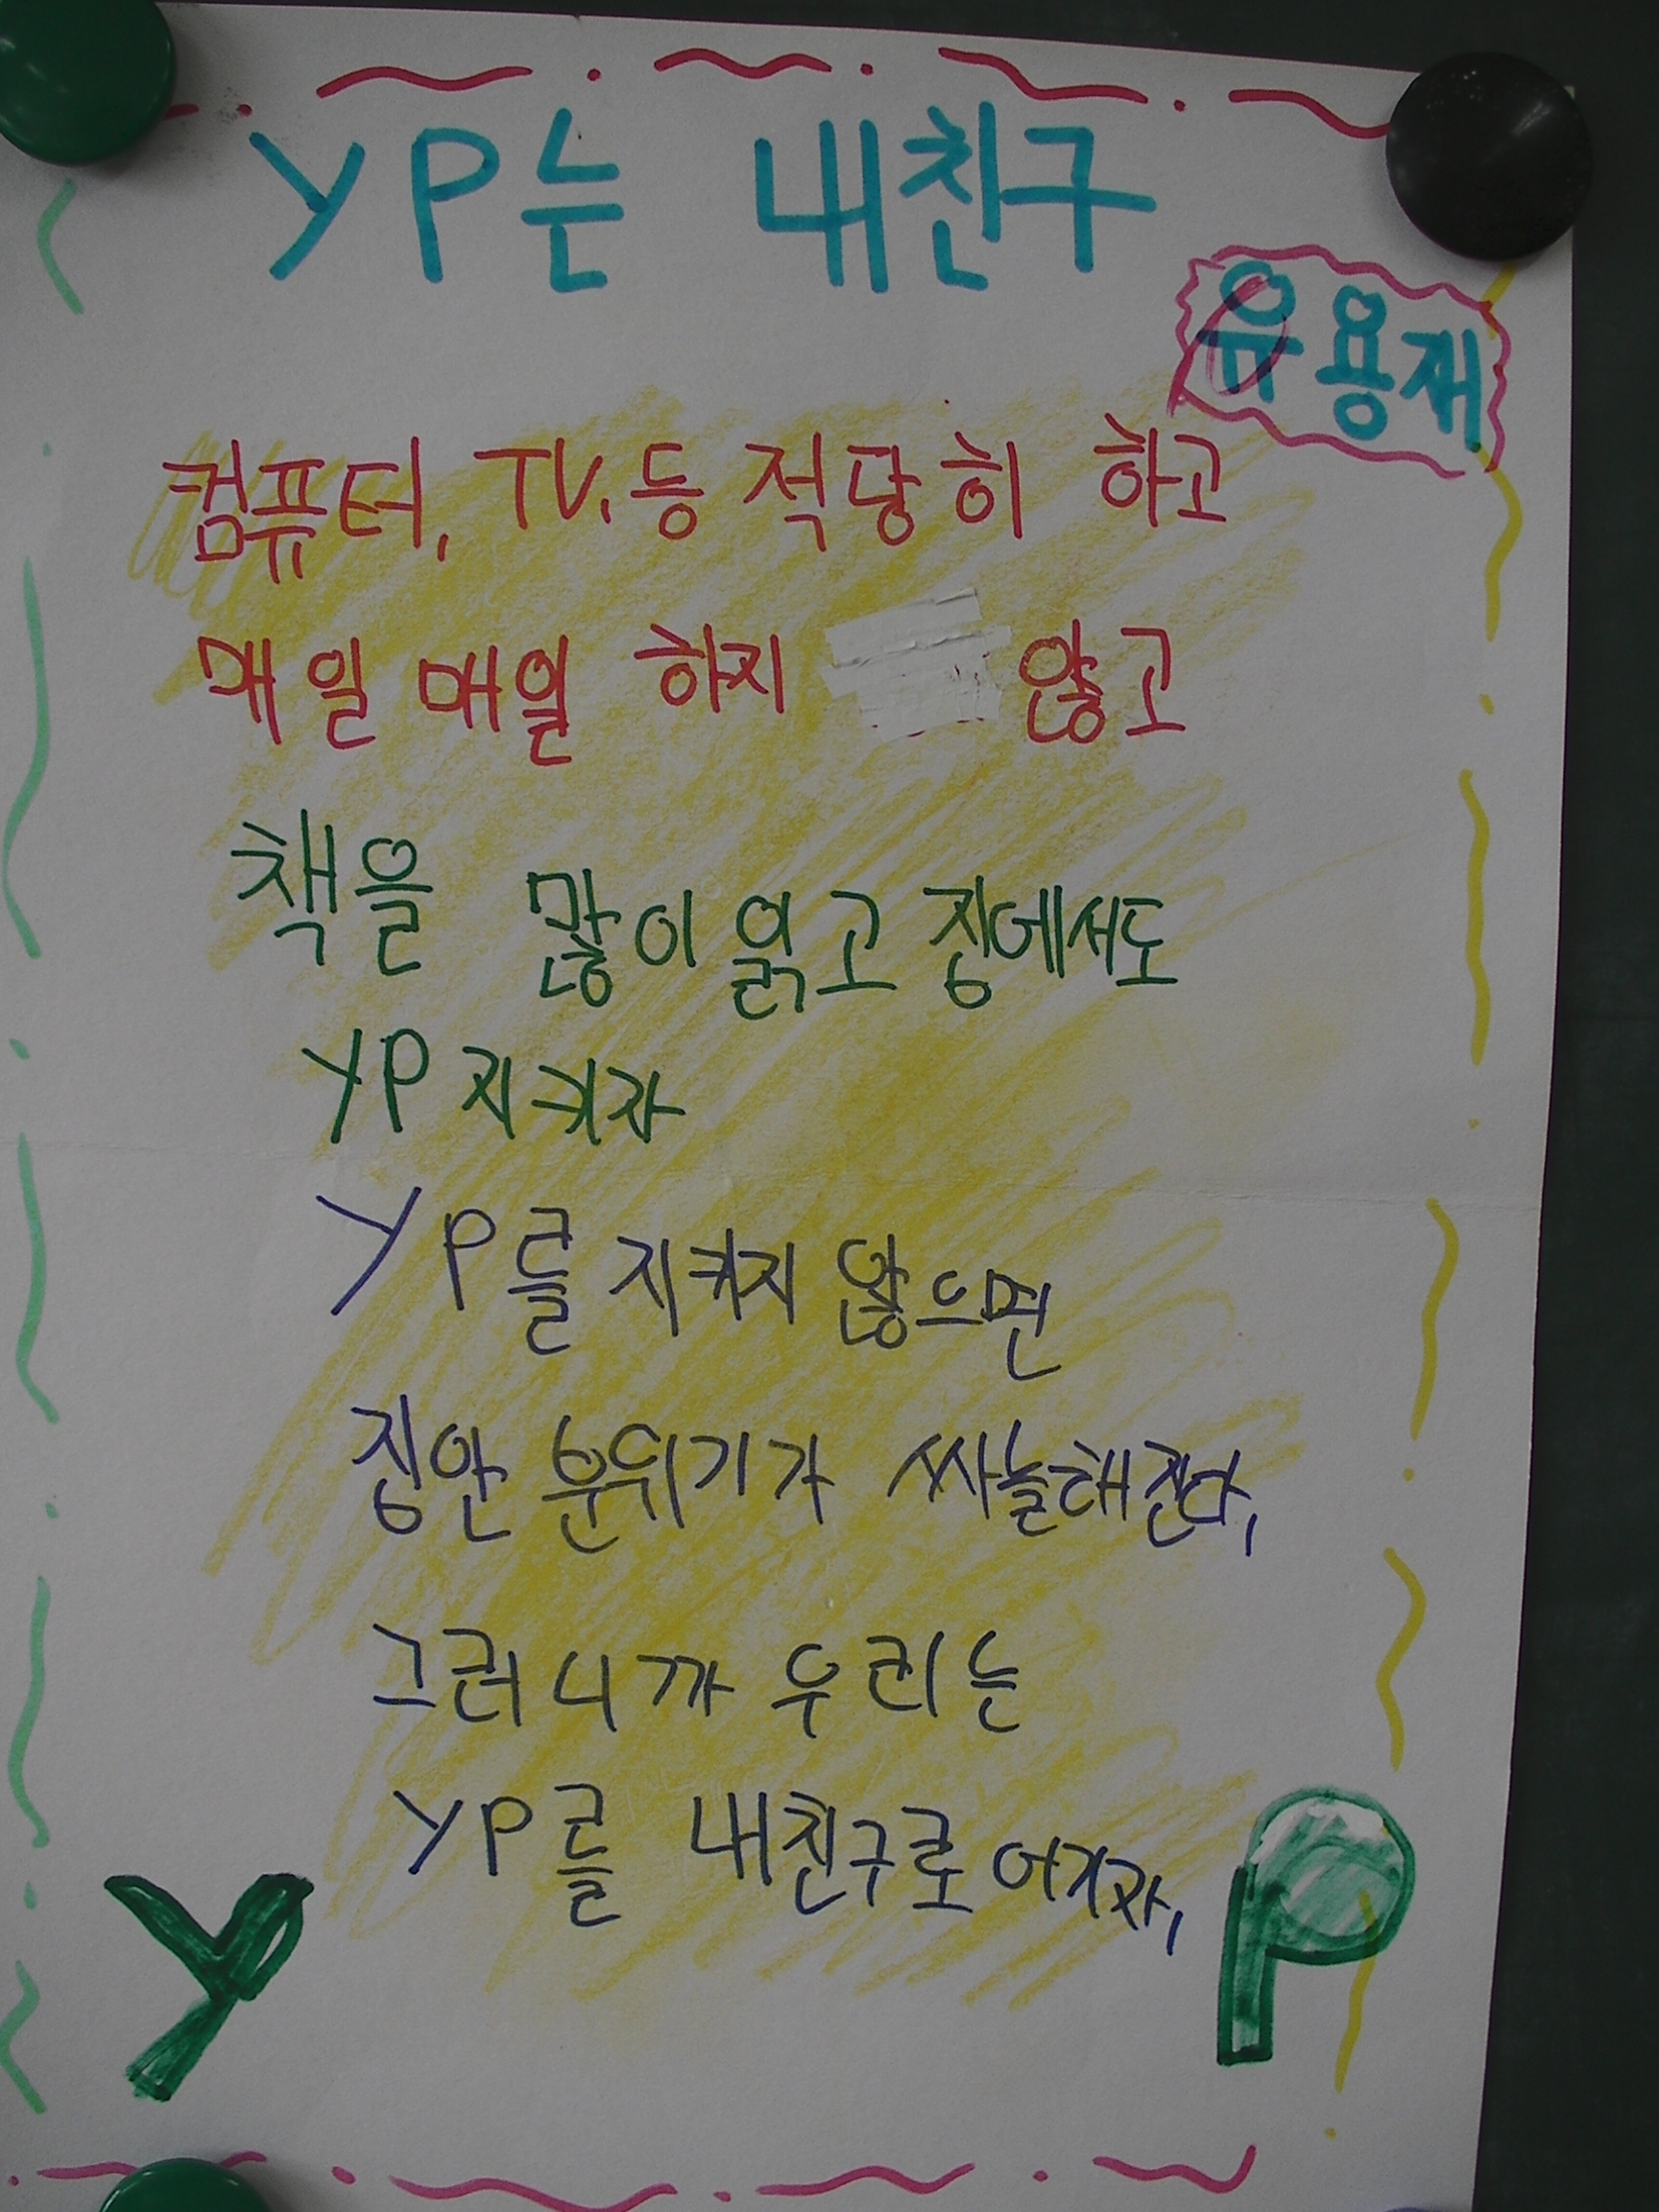 YP는 내친구
유용재
컴퓨터, TV, 등 적당히 하고
매일 매일 하지 않고
책을 많이 읽고 집에서도
YP 지키자
YP를 지키지 않으면
집안 분위기가 싸늘해진다,
그러니까 우리는
YP를 내친구로 여기자,
Y P